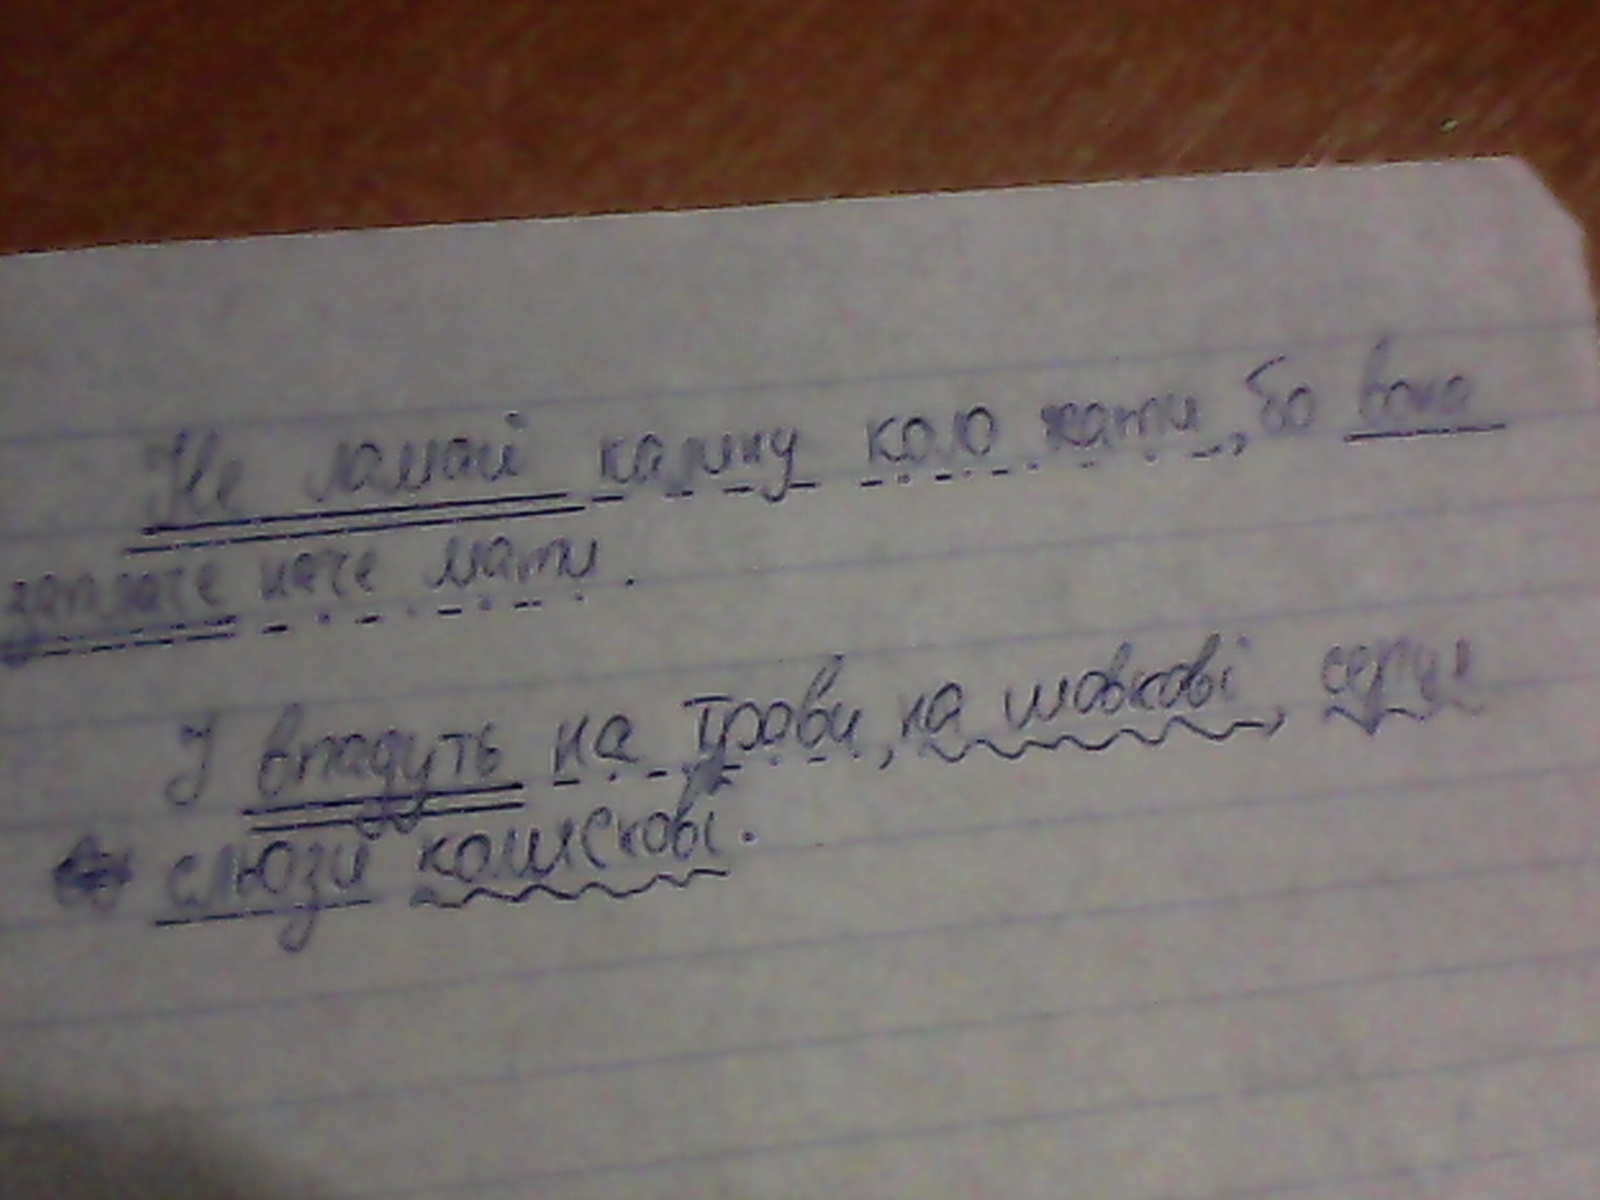 Не ламай калину коло хати, бо вона
заплаче наче мати.
І впадуть на трави, на шовкові,
слюзи